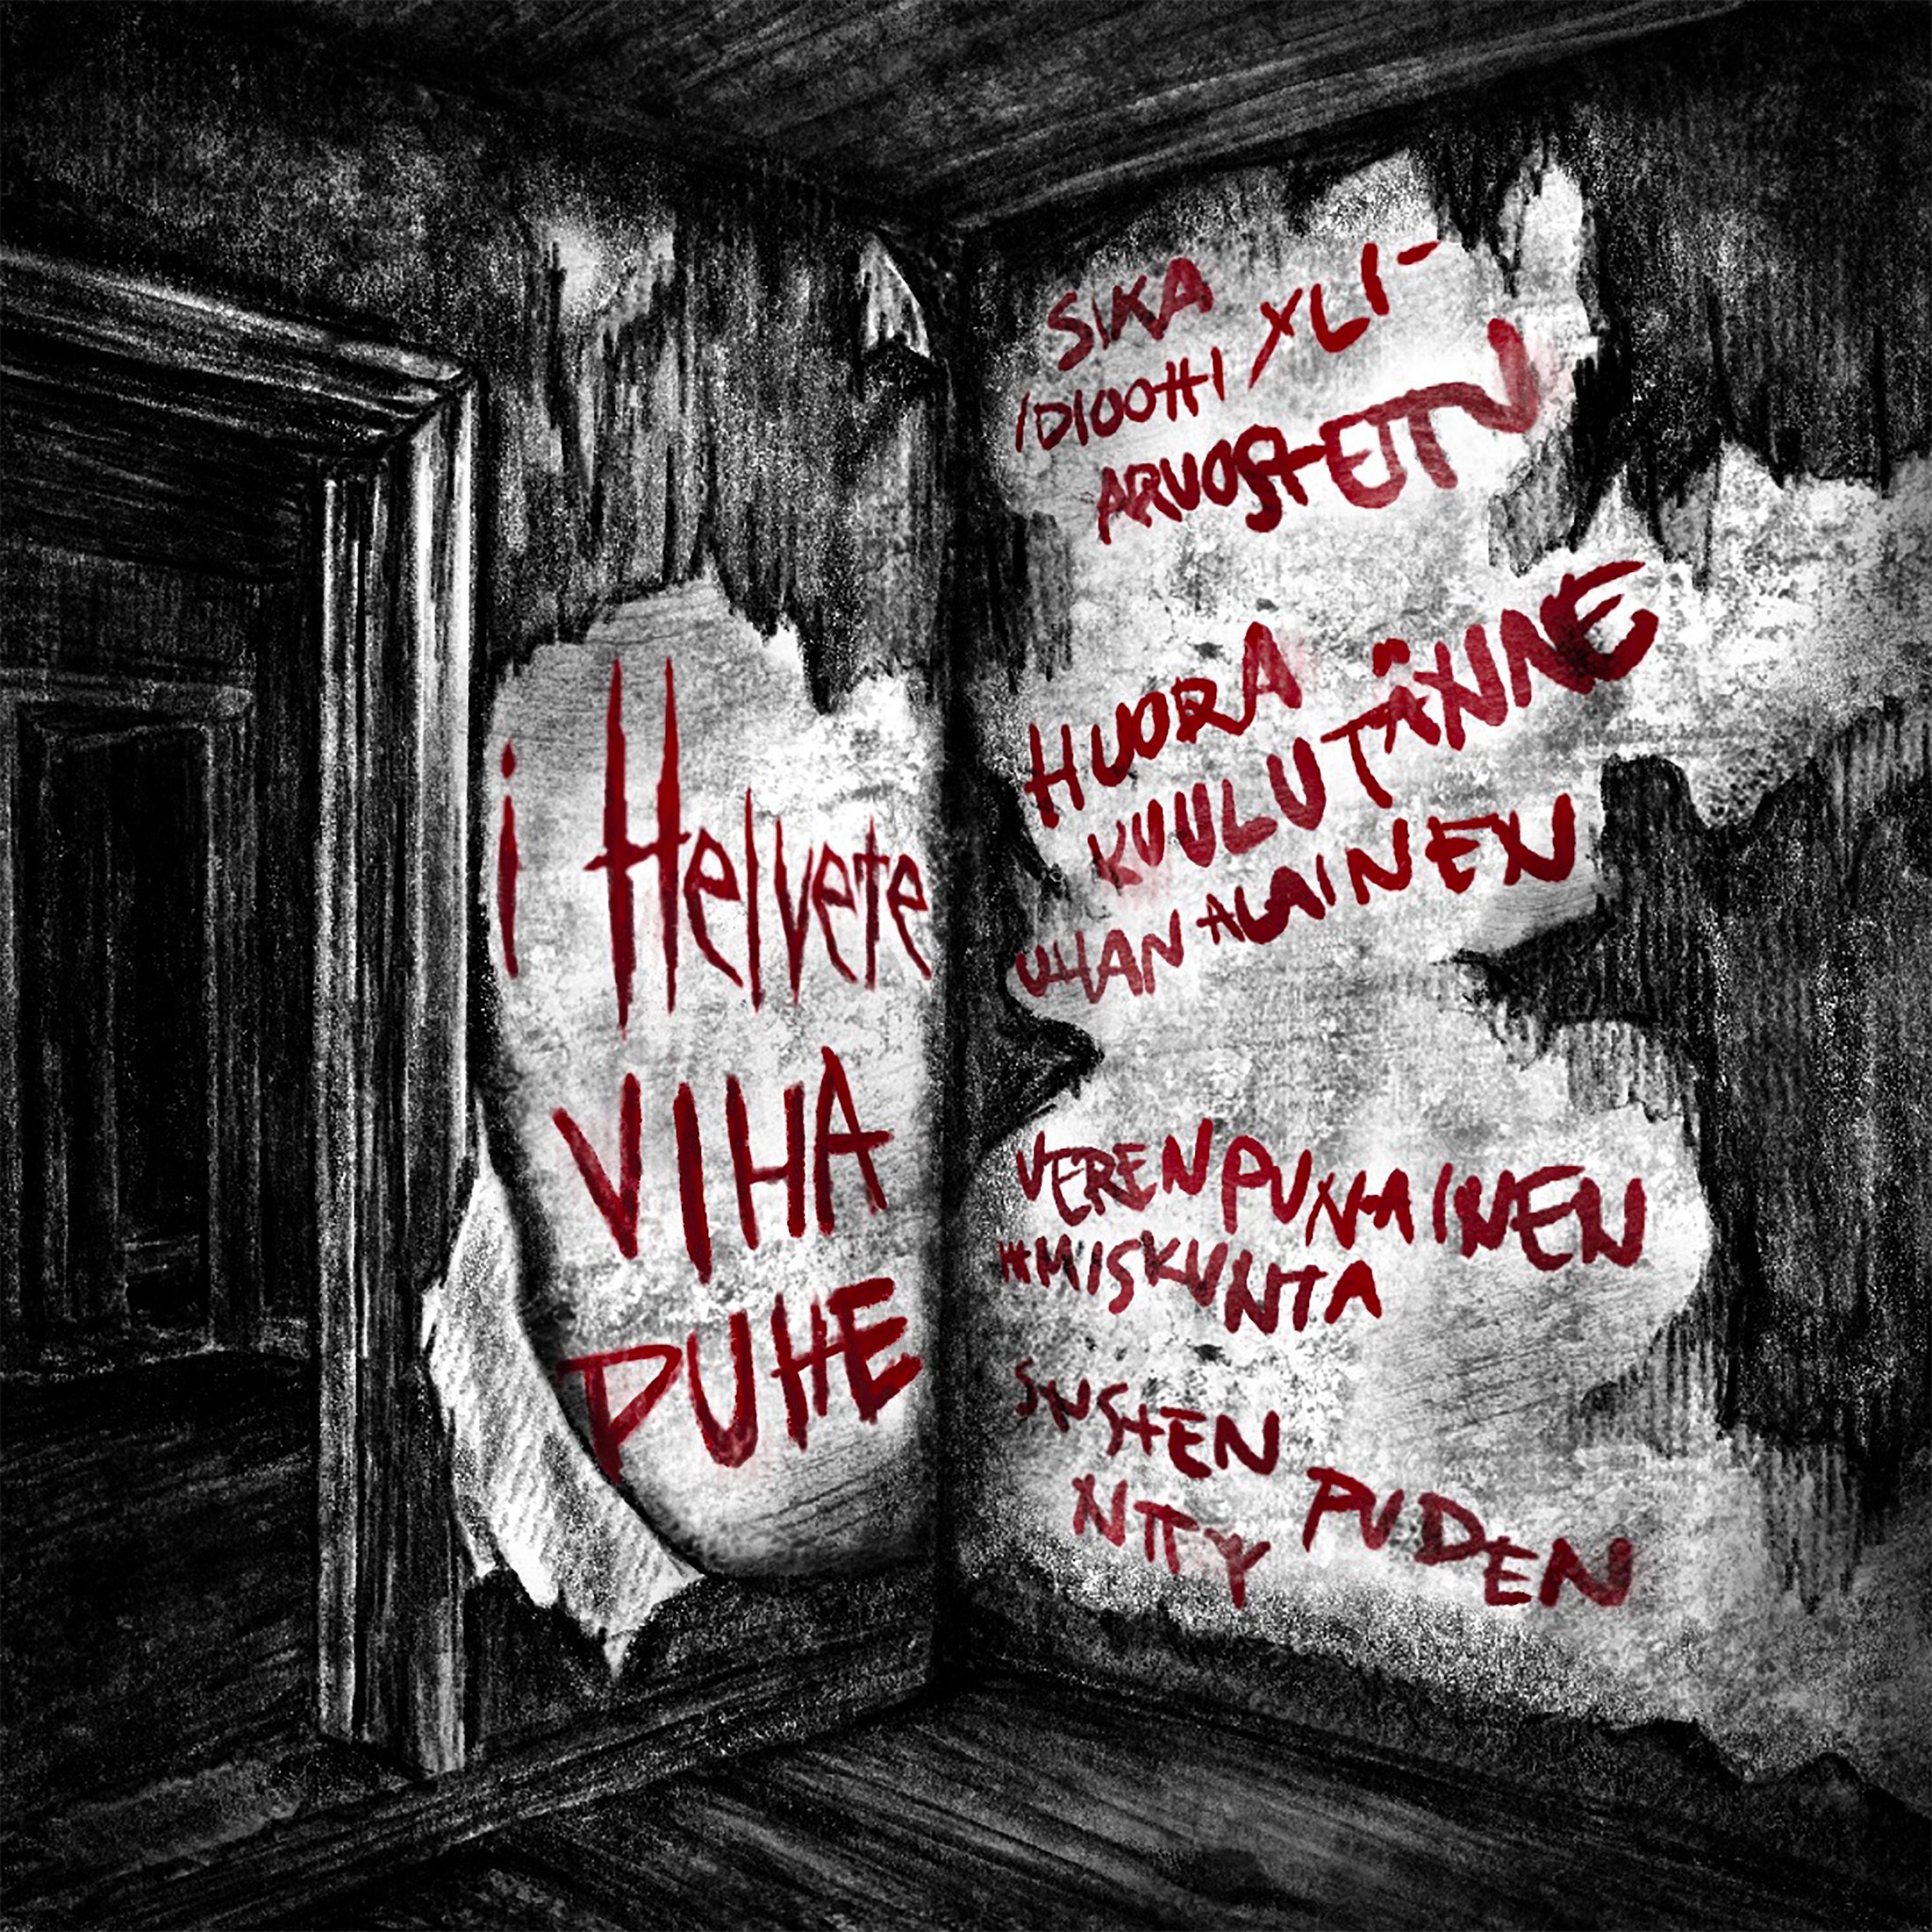 i Helvete
VIHA
PUHE
SIKA
IDIOOTTI YLI-
ARVOSTETTU
HUORA
KUULUTÄNNE
UHAN ALAINEN
VERENPUNAINEN
IHMISKUNTA
SYSTEN
NTTY PUDEN